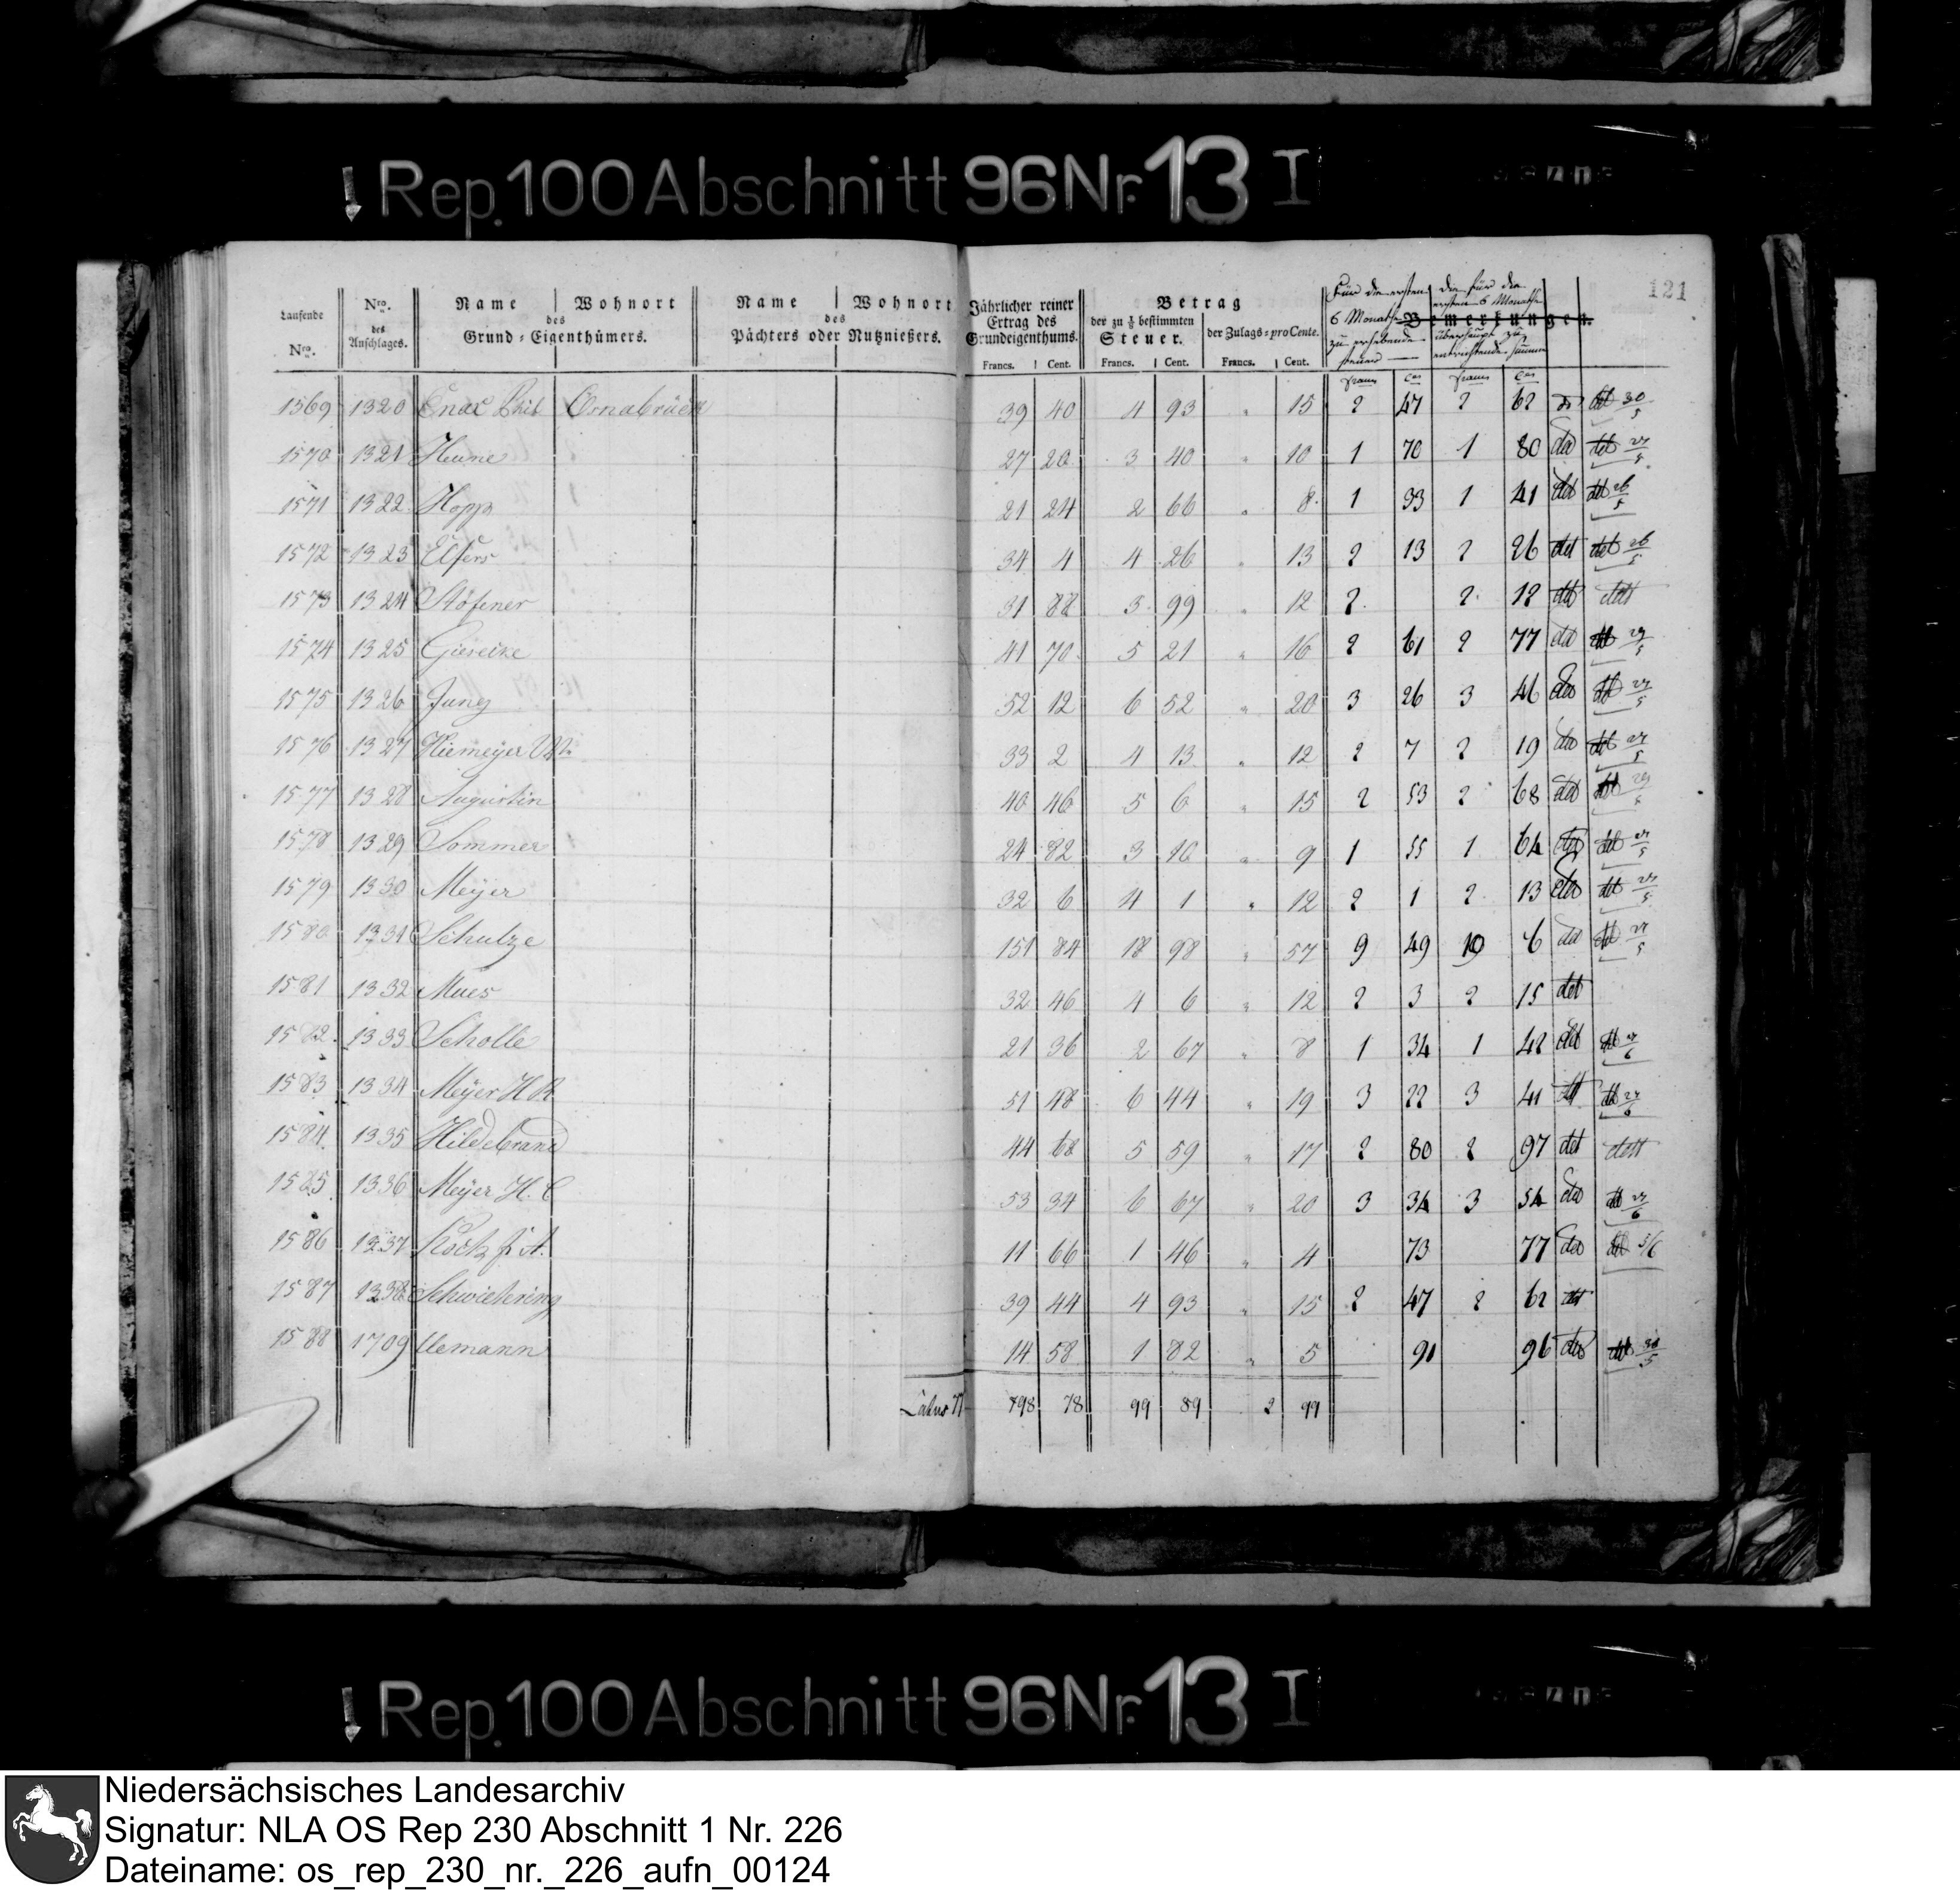 Rep. 100 Abschnitt 96 Nr. 13 I
121
Laufende Nro. | Nro. des Anschlages. | Name | Wohnort des Grund-Eigenthümers. | Name | Wohnort des Pächters oder Nutznießers. | Jährlicher reiner Ertrag des Grundeigenthums. Francs. Cent. | Betrag der zu 1/8 bestimmten Steuer. Francs. Cent. | der Zulags-pro Cente. Francs. Cent. | Für die ersten 6 Monathe zu erhebende Steuer | Bemerkungen. die für die ersten 6 Monathe überhaupt zu entrichtende Summe
1569 1320 Osnabrück 39 40 4 93 " 15 2 47 2 62 30/5
1570 1321 Heune 27 20 3 40 " 10 1 70 1 80 27/5
1571 1322 Hopp 21 24 2 66 " 8 1 33 1 41 26/5
1572 1323 Elfers 34 4 4 26 " 13 2 13 2 26 det det 26/5
1573 1324 Stöfener 31 88 3 99 " 12 2 2 12 dett
1574 1325 Giesecke 41 70 5 21 " 16 2 61 2 77 29/5
1575 1326 Jung 52 12 6 52 " 20 3 26 3 46 27/5
1576 1327 Niemeyer 33 2 4 13 " 12 2 7 2 19 27/5
1577 1328 Augustin 40 46 5 6 " 15 2 53 2 68 29/5
1578 1329 Sommer 24 82 3 10 " 9 1 55 1 64 27/5
1579 1330 Meÿer 32 6 4 1 " 12 2 1 2 13 27/5
1580 1331 Schulze 151 84 18 98 " 57 9 49 10 6 27/5
1581 1332 Mues 32 46 4 6 " 12 2 3 2 15 det
1582 1333 Scholle 21 36 2 67 " 8 1 34 1 42
1583 1334 Meÿer H R 51 48 6 44 " 19 3 22 3 41 27/6
1584 1335 Hildebrand 44 68 5 59 " 17 2 80 2 97 det dett
1585 1336 Meÿer H. C 53 34 6 67 " 20 3 34 3 54 27/6
1586 1337 11 66 1 46 " 4 73 77 5/6
1587 1338 Schwiehring 39 44 4 93 " 15 2 47 2 62
1588 1709 Uemann 14 58 1 82 " 5 91 96 30/5
Latus 798 78 99 89 2 99
Rep. 100 Abschnitt 96 Nr. 13 I
Niedersächsisches Landesarchiv
Signatur: NLA OS Rep 230 Abschnitt 1 Nr. 226
Dateiname: os_rep_230_nr._226_aufn_00124